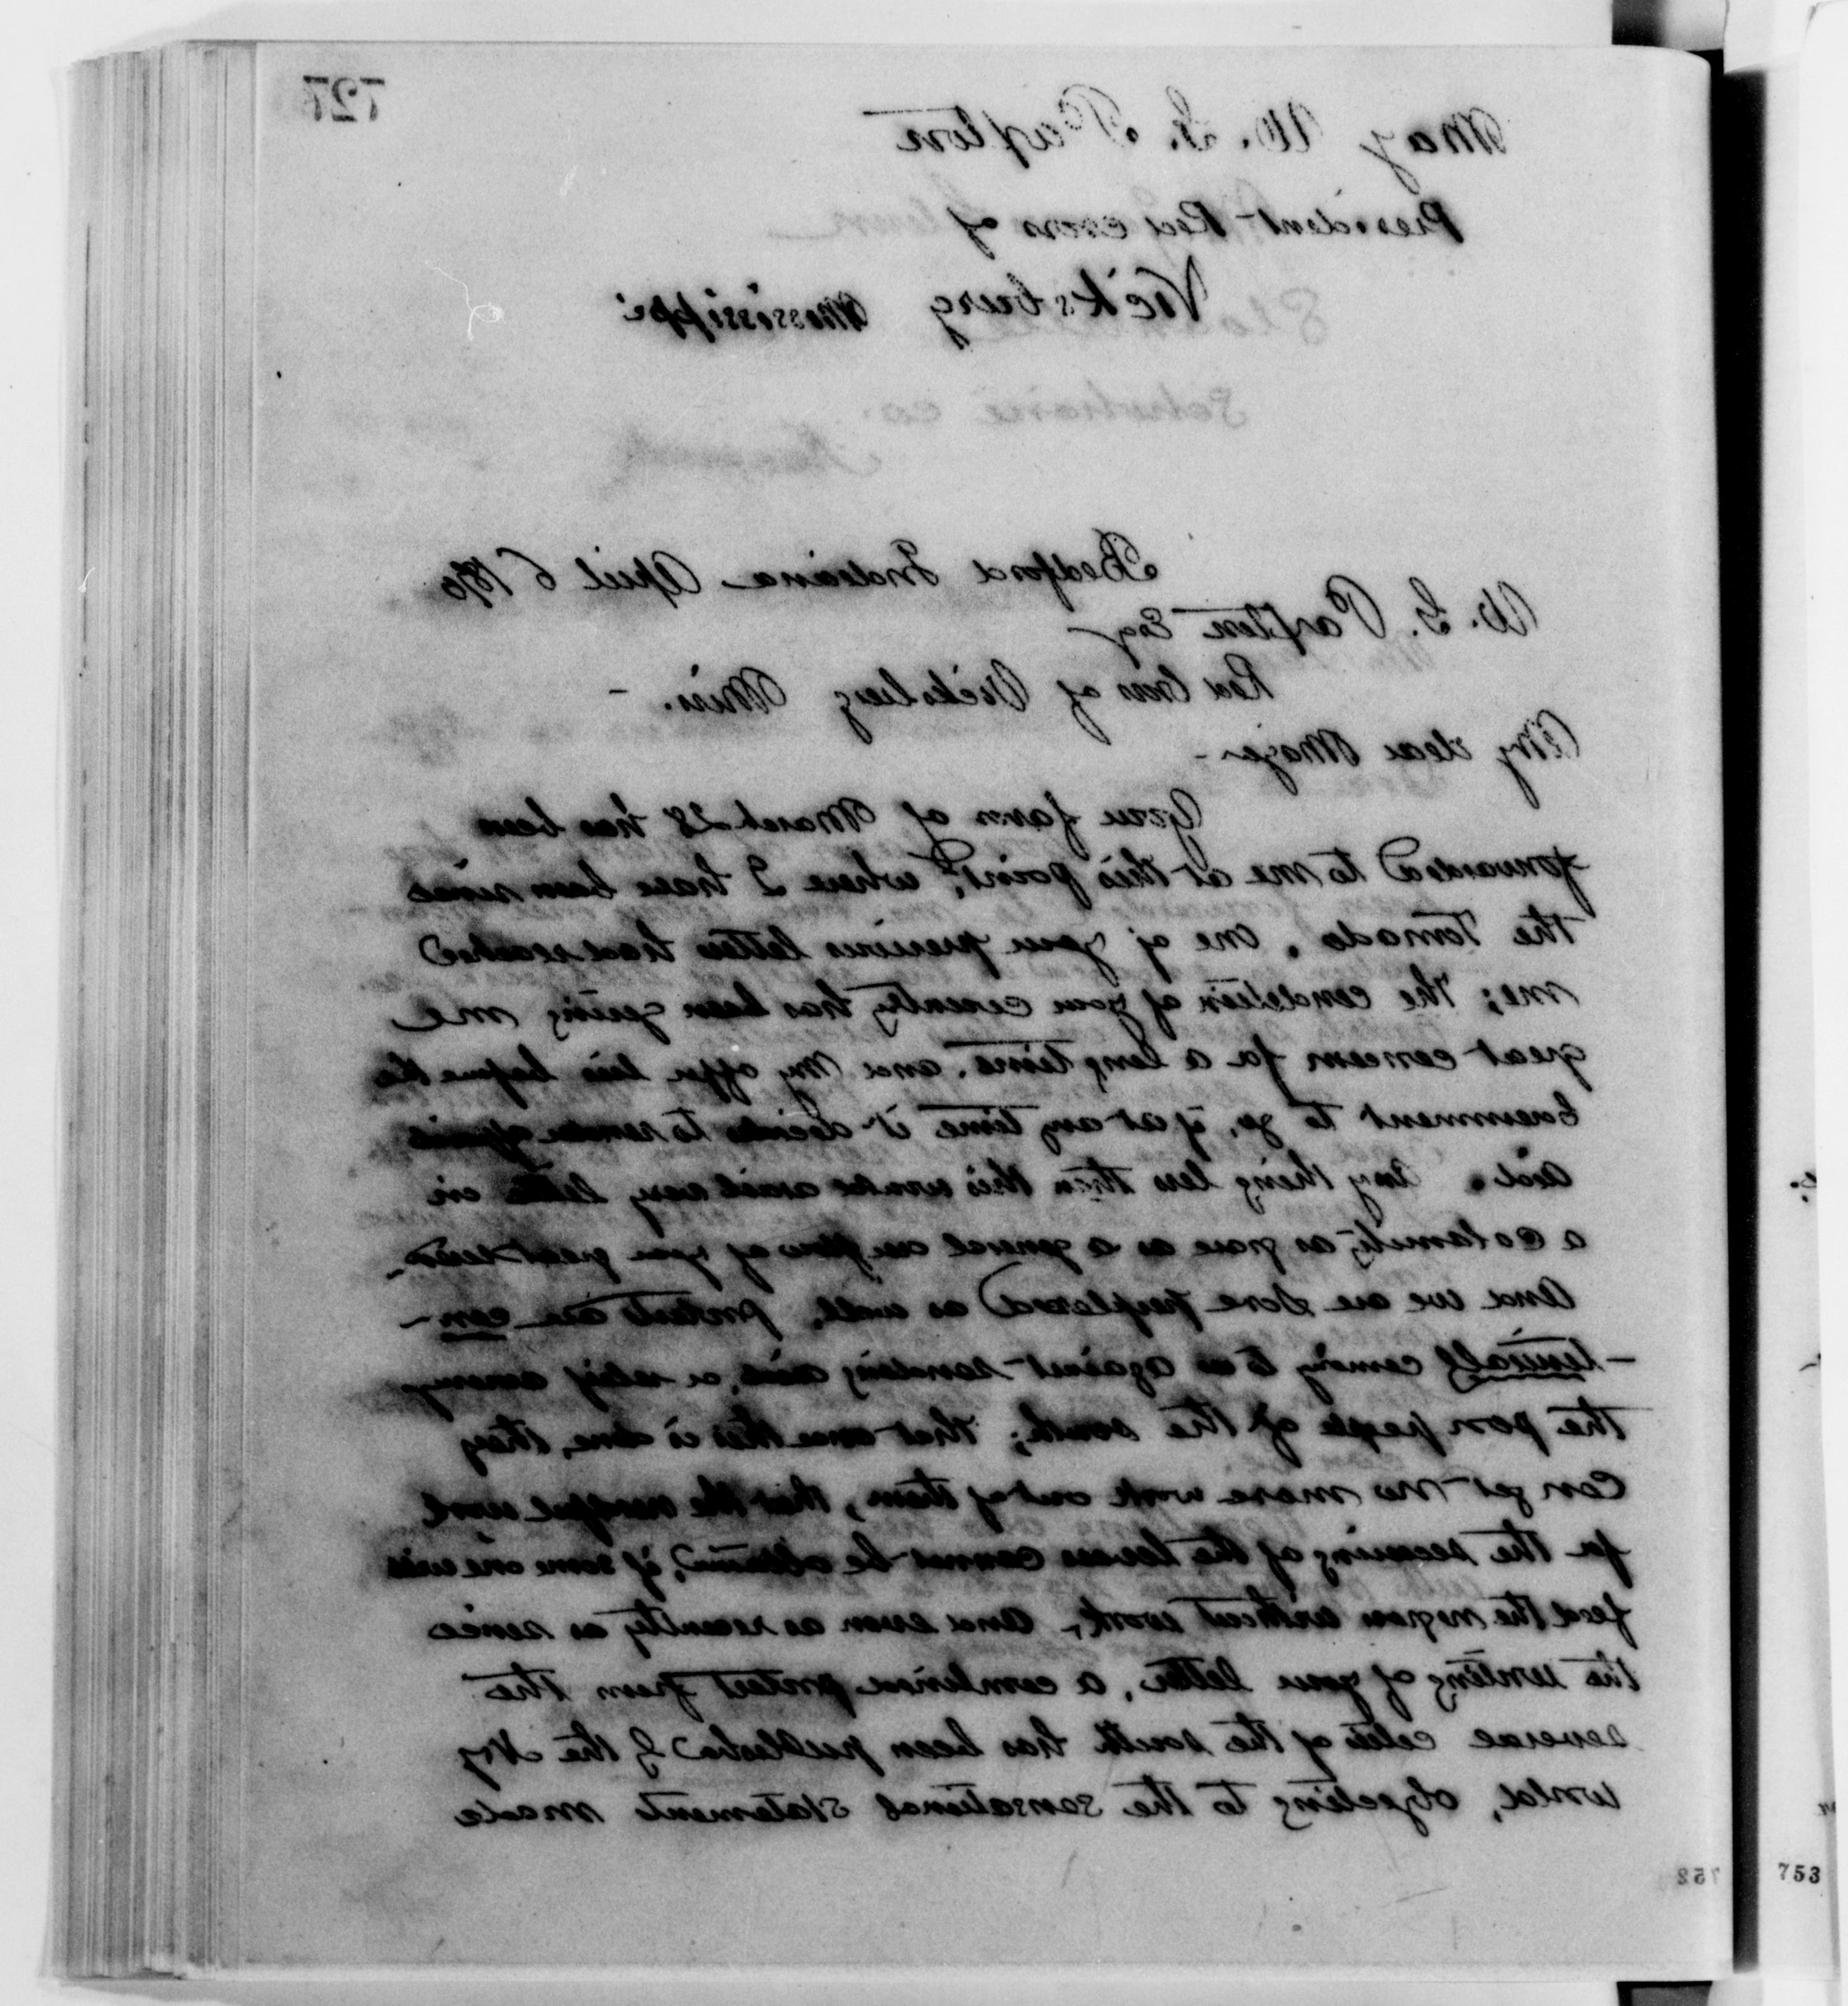 727
Maj W. G. Paxton
President Red cross of
Vicksburg Mississippi
Schoharie Co.
Bedford Indiana April 6 1890
W. G. Paxton Esq
Red Cross of Vicksburg Miss. -
My dear Major -
Your favor of March 28 has been
forwarded to me at this point, where I have been since
the Tornado. One of your previous letters had reached
me; the condition of your country has been giving me
great concern for a long time, and my offer lies before the
Government to go, if at any time it decides to render
aid. Any thing less than this would avail very little in
a calamity as grave as a general overflow of your great river
And we are sore perplexed as well, protests are con-
-tinually coming to us against sending aid, or relief among
the poor people of the south; that once this is done, they
can get no more work out of them, that the needful work
for the securing of the levees cannot be obtained, if some one will
feed the negroes without work, and even as recently as since
the writing of your letter, a combined protest from the
several cities of the south has been published by the N.Y
World, objecting to the sensational statement made
752
753